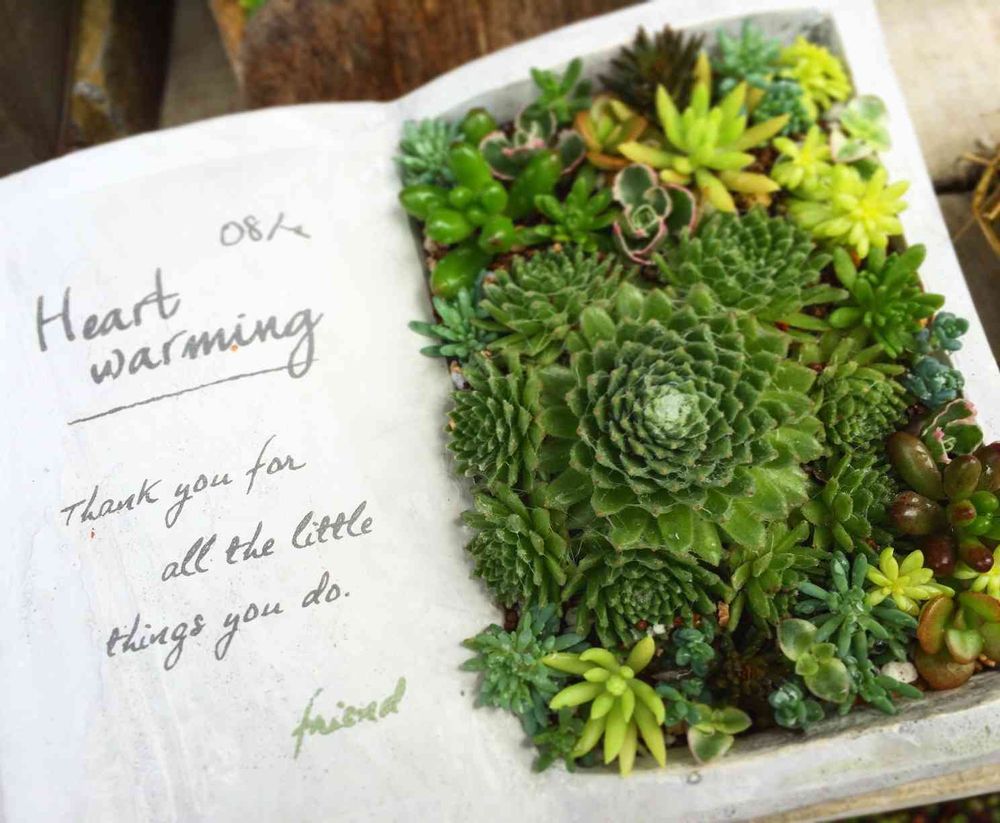 Heart
warming
Thank you for
all the little
things you do.
friend